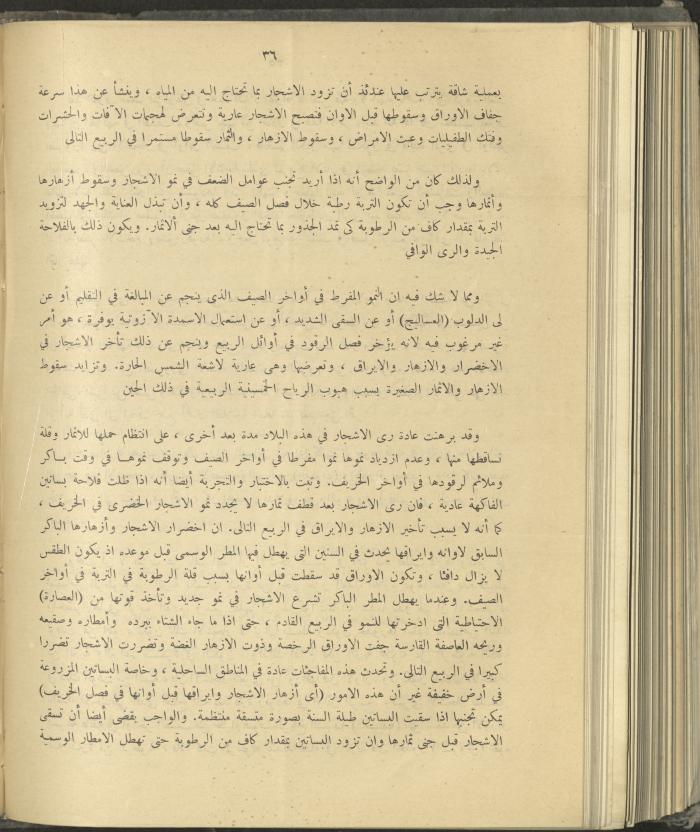 ٣٦
بعملية شاقة يترتب عليها عندئذ أن تزود الاشجار بما تحتاج اليه من المياه ، وينشأ عن هذا سرعة
جفاف الاوراق وسقوطها قبل الاوان فتصبح الاشجار عارية وتتعرض لهجمات الآفات والحشرات
وفتك الطفيليات وعبث الامراض ، وسقوط الازهار ، والثمار سقوطا مستمرا في الربيع التالى
ولذلك كان من الواضح أنه اذا أريد تجنب عوامل الضعف في نمو الاشجار وسقوط أزهارها
وأثمارها وجب أن تكون التربة رطبة خلال فصل الصيف كله ، وأن تبذل العناية والجهد لتزويد
التربة بمقدار كاف من الرطوبة كى تمد الجذور بما تحتاج اليه بعد جنى ألاثمار. ويكون ذلك بالفلاحة
الجيدة والرى الوافي
ومما لا شك فيه ان النمو المفرط في أواخر الصيف الذى ينجم عن المبالغة في التقليم أو عن
لى الدلوب (العساليج) أو عن السقى الشديد ، أو عن استعمال الاسمدة الآزوتية بوفرة ، هو أمر
غير مرغوب فيه لانه يؤخر فصل الرقود في أوائل الربيع وينجم عن ذلك تأخر الاشجار في
الاخضرار والازهار والايراق ، وتعرضها وهى عارية لاشعة الشمس الحارة. وتزايد سقوط
الازهار والاثمار الصغيرة بسبب هبوب الرياح الخمسينية الربيعية في ذلك الحين
وقد برهنت عادة رى الاشجار في هذه البلاد مدة بعد أخرى ، على انتظام حملها للاثمار وقلة
تساقطها منها ، وعدم ازدياد نموها نموا مفرطا في أواخر الصيف وتوقف نموهـا في وقت بـاكر
وملائم لرقودها في أواخر الخريف. وثبت بالاختبار والتجربة أيضا أنه اذا ظلت فلاحة بساتين
الفاكهة عادية ، فان رى الاشجار بعد قطف ثمارها لا يجدد نمو الاشجار الخضرى في الخريف ،
كما أنه لا يسبب تأخير الازهار والايراق في الربيع التالى. ان اخضرار الاشجار وأزهارها الباكر
السابق لاوانه وايراقها يحدث في السنين التى يهطل فيها المطر الوسمى قبل موعده اذ يكون الطقس
لا يزال دافئا ، وتكون الاوراق قد سقطت قبل أوانها بسبب قلة الرطوبة في التربة في أواخر
الصيف. وعندما يهطل المطر الباكر تشرع الاشجار في نمو جديد وتأخذ قوتها من (العصارة)
الاحتياطية التى ادخرتها للنمو في الربيع القادم ، حتى اذا ما جاء الشتاء ببرده وأمطاره وصقيعه
وريحه العاصفة القارسة جفت الاوراق الرخصة وذوت الازهار الغضة وتضررت الاشجار تضررا
كبيرا في الربيع التالى. وتحدث هذه المفاجئات عادة في المناطق الساحلية ، وخاصة البساتين المزروعة
في أرض خفيفة غير أن هذه الامور (أى أزهار الاشجار وايراقها قبل أوانها في فصل الخريف)
يمكن تجنبها اذا سقيت البساتين طيلة السنة بصورة متسقة منتظمة. والواجب يقضى أيضا أن تسقى
الاشجار قبل جنى ثمارها وان تزود البساتين بمقدار كاف من الرطوبة حتى تهطل الامطار الوسمية